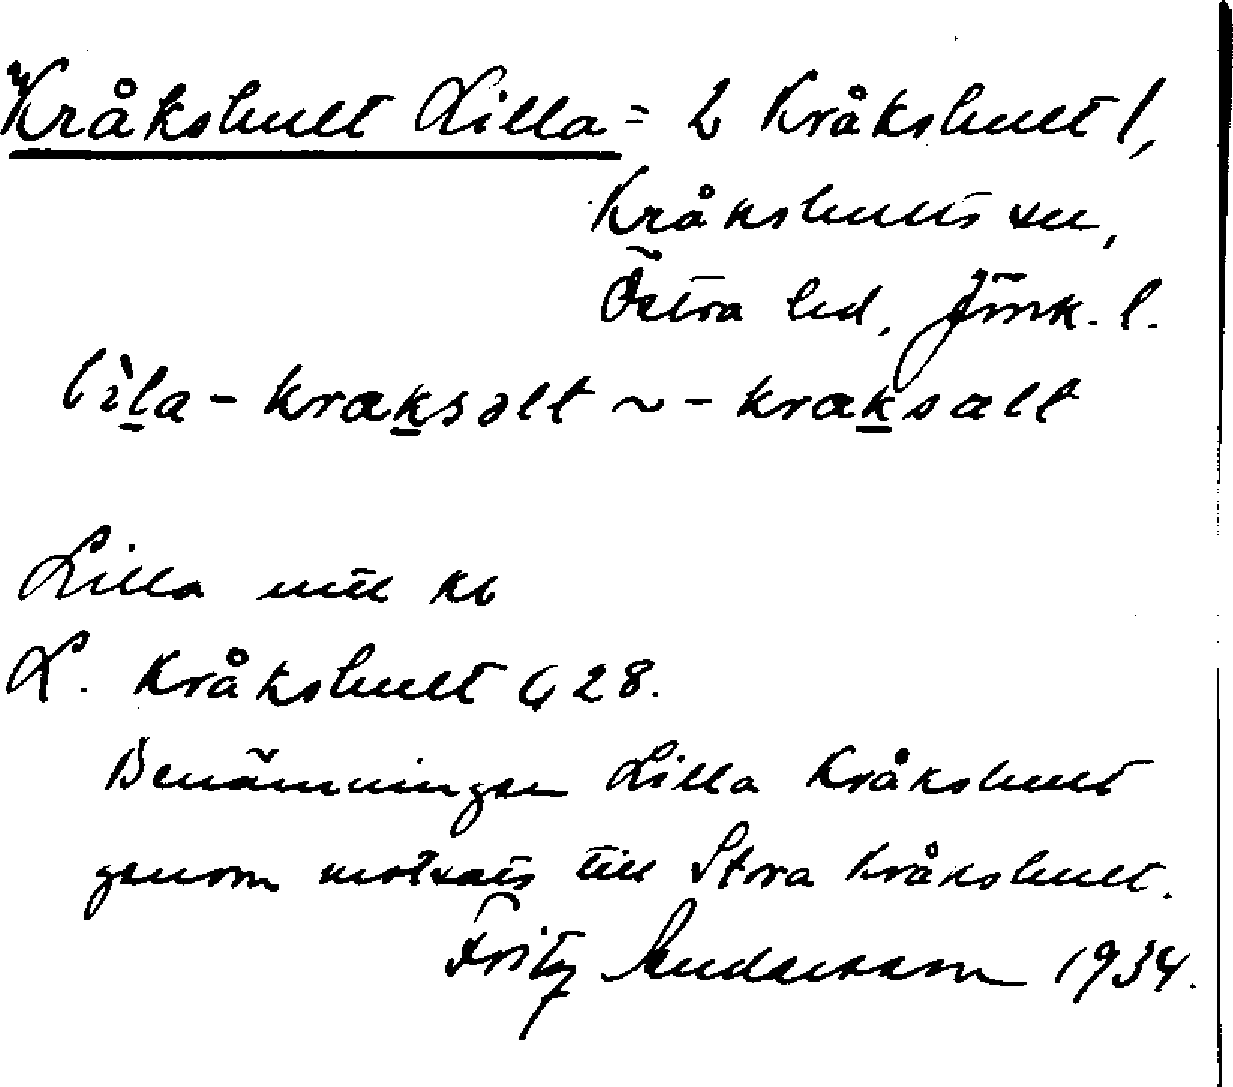 Kråkshult Lilla = L Kråkshult 1,
Kråkshults sn,
Östra hd, Jönk. l.
lìla - kraksəlt ~ - kraksalt
Lilla mtl kb
L. Kråkshult G 28.
Benämningen Lilla Kråkshult
genom motsats till Stora Kråkshult.
Fritz Andersson 1934.